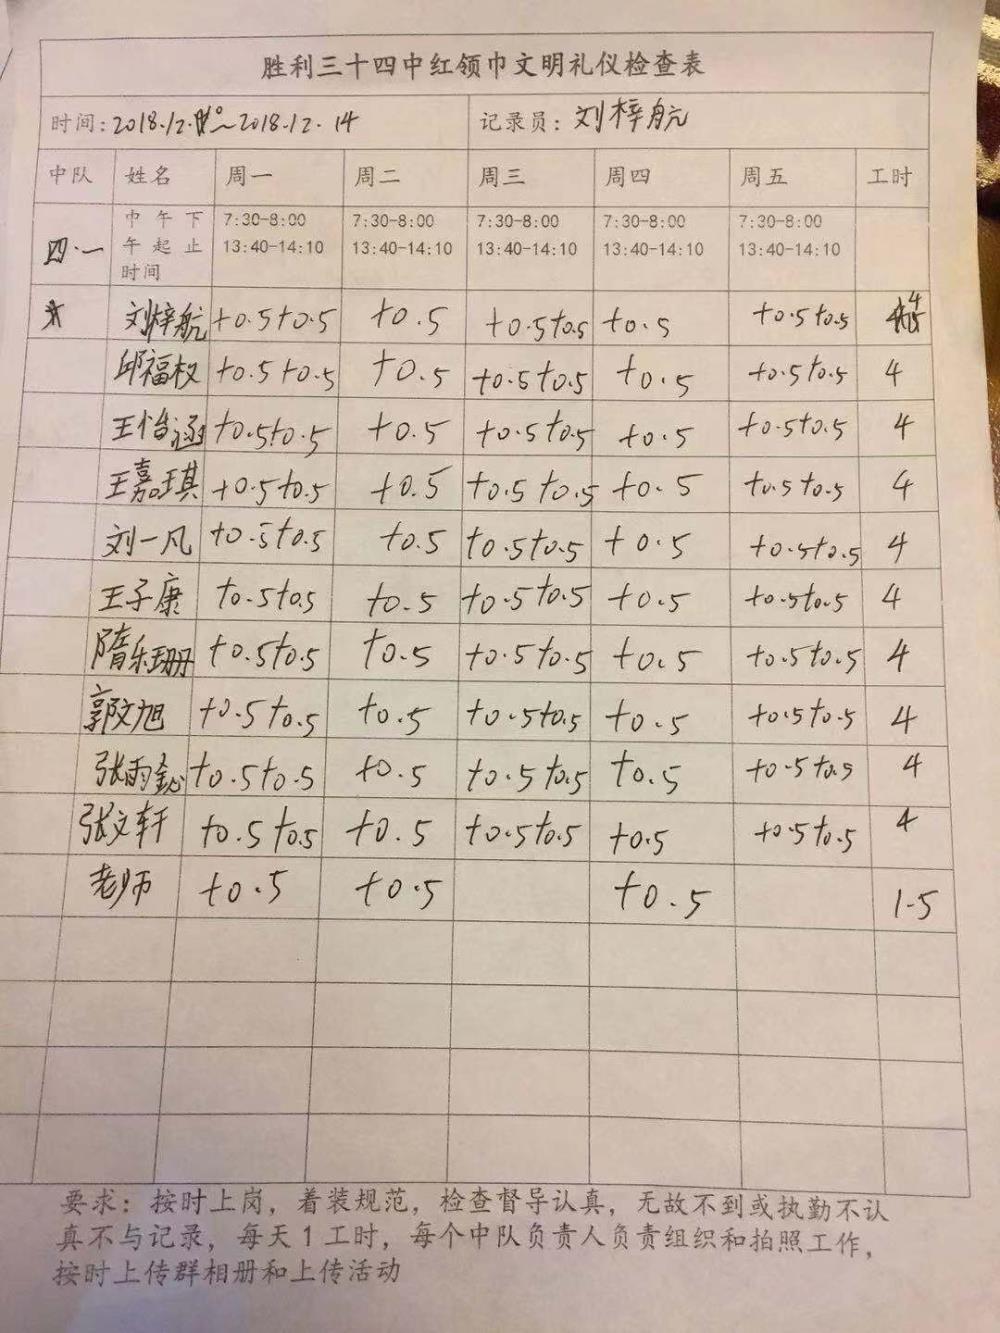 胜利三十四中红领巾文明礼仪检查表
时间:2018.12.10～2018.12.14 记录员:刘梓航
中队 姓名 周一 周二 周三 周四 周五 工时
四.一 中午下午起止时间 7:30-8:00 13:40-14:10 7:30-8:00 13:40-14:10 7:30-8:00 13:40-14:10 7:30-8:00 13:40-14:10 7:30-8:00 13:40-14:10
刘梓航 +0.5+0.5 +0.5 +0.5+0.5 +0.5 +0.5+0.5 4
邱福权 +0.5+0.5 +0.5 +0.5+0.5 +0.5 +0.5+0.5 4
王怡涵 +0.5+0.5 +0.5 +0.5+0.5 +0.5 +0.5+0.5 4
王嘉琪 +0.5+0.5 +0.5 +0.5+0.5 +0.5 +0.5+0.5 4
刘一凡 +0.5+0.5 +0.5 +0.5+0.5 +0.5 +0.5+0.5 4
王子康 +0.5+0.5 +0.5 +0.5+0.5 +0.5 +0.5+0.5 4
隋乐珊 +0.5+0.5 +0.5 +0.5+0.5 +0.5 +0.5+0.5 4
郭文旭 +0.5+0.5 +0.5 +0.5+0.5 +0.5 +0.5+0.5 4
张雨 +0.5+0.5 +0.5 +0.5+0.5 +0.5 +0.5+0.5 4
张文轩 +0.5+0.5 +0.5 +0.5+0.5 +0.5 +0.5+0.5 4
老师 +0.5 +0.5 +0.5 1.5
要求：按时上岗，着装规范，检查督导认真，无故不到或执勤不认
真不与记录，每天1工时，每个中队负责人负责组织和拍照工作，
按时上传群相册和上传活动